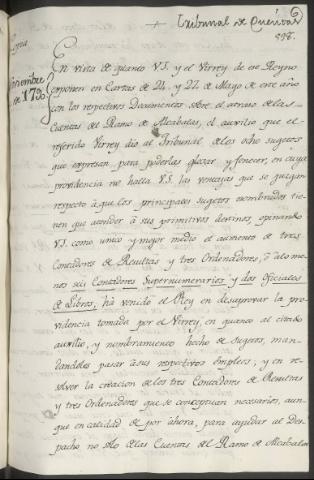 Tribunal de Cuentas
En vista de quanto V.S. y el Virrey de ese Reyno
exponen en Cartas de 24, y 22 de Mayo de este año
con los respectivos Documentos sobre el atraso de las
Cuentas del Ramo de Alcabalas, el auxilio que el
referido Virrey dio al Tribunal de los ocho sugetos
que expresan para poderlas glosar y fenecer, en cuya
providencia no halla V.S. las ventajas que se juzgan
respecto à que los principales sugetos nombrados tie-
nen que atender à sus primitivos destinos, opinando
V.S. como unico y mejor medio el aumento de tres
Contadores de Resultas y tres Ordenadores, ò alo me-
nos seis Contadores Supernumerarios y dos oficiales
de Libros, ha venido el Rey en desaprovar la pro-
videncia tomada por el Virrey, en quanto al citado
auxilio, y nombramiento hecho de sugetos, man-
dandoles pasar à sus respectivos empleos; y en re-
solver la creacion de los tres Contadores de Resultas
y tres Ordenadores que se conceptuan necesarios, aun-
que en calidad de por ahora, para ayudar al Des-
pacho no solo de las Cuentas del Ramo de Alcabalas